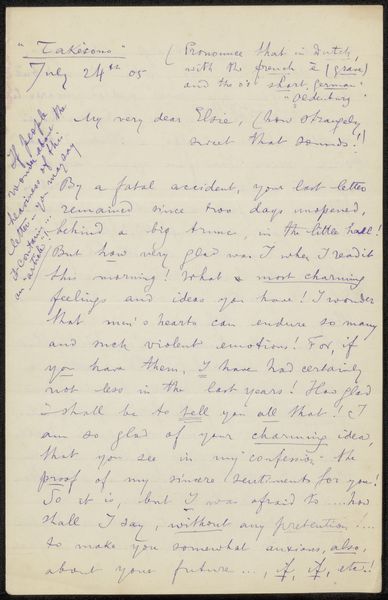 "Takésono"
July 24th 05
(Pronounce that in Dutch,
with the french è (grave)
and the o's short, german
"Oldenburg
My very dear Elsie, (how strangely
sweet that sounds!)
If people
wonder about the
heaviness of this
letter - you may say
it contains...
an "article"!
By a fatal accident, your last letter
remained since two days unopened,
behind a big trunc, in the little hall!
But how very glad was I when I read it
this morning! What a most charming
feelings and ideas you have! I wonder
that men's hearts can endure so many
and such violent emotions! For, if
you have them, I have had certainly
not less in the last years! How glad
I shall be to tell you all that! I
am so glad of your charming idea,
that you see in my "confession" the
proof of my sincere sentiments for you!
So it is, but I was afraid to ... how
shall I say, without any pretention!...
to make you somewhat anxious, also,
about your future ..., if, if, etc.!